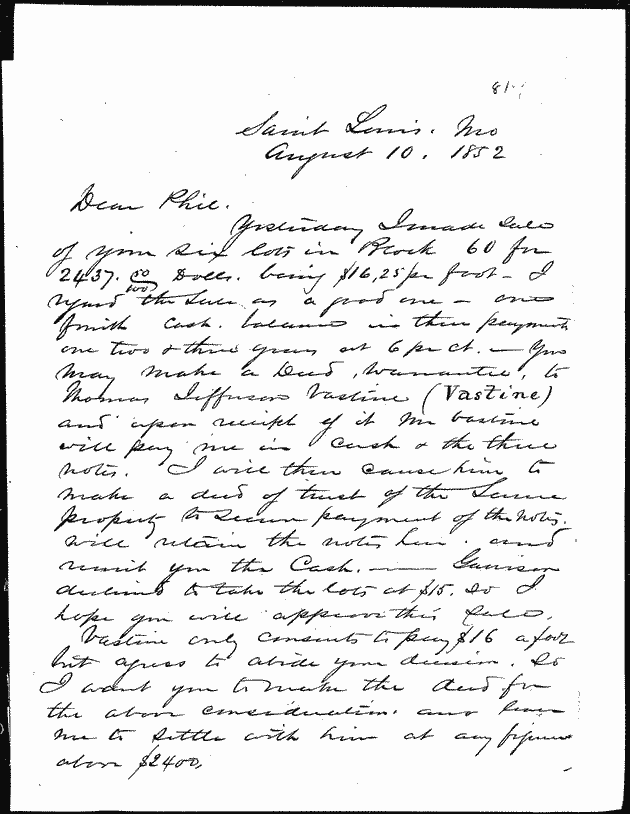 81
Saint Louis. Mo
August 10. 1852
Dear Phil.
Yesterday I made sale
of your six lots in Block 60 for
2437. 50/100 Dolls. being $16,25 per foot - I
regard the Sale as a good one - one
fourth cash. balance in three payments
one two & three years at 6 pr ct. - You
may make a Deed, Warrantee, to
Thomas Jefferson Vastine (Vastine)
and upon receipt of it Mr Vastine
will pay me in cash & the three
notes. I will then cause him to
make a deed of trust of the Same
property to secure payment of the notes.
will retain the notes here. and
remit you the Cash. — Garrison
declined to take the lots at $15. So I
hope you will approve this Sale.
Vastine only consents to pay $16 a foot
but agrees to abide your decision. So
I want you to make the deed for
the above consideration. and leave
me to settle with him at any figure
above $2400.